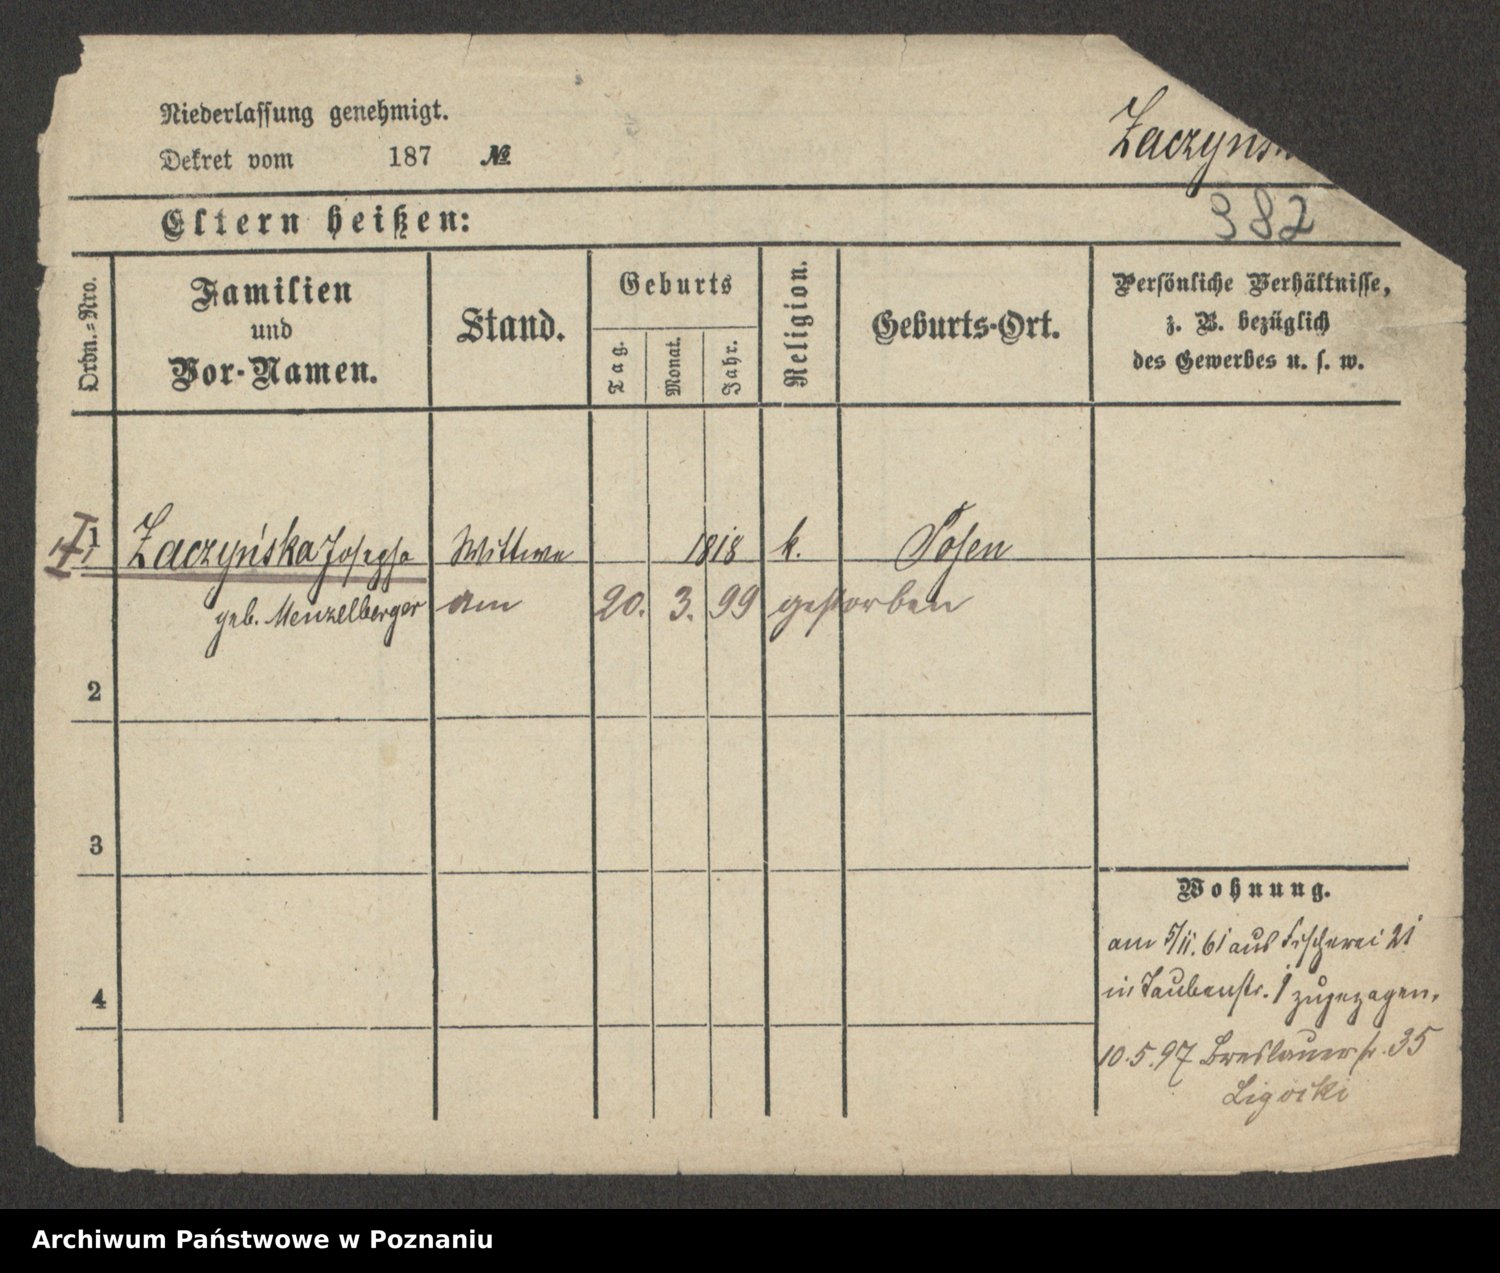 Niederlassung genehmigt.
Dekret vom 187 №
Zaczyńsk
Eltern heißen:
382
Ordn.-Nro.
Familien
und
Vor-Namen.
Stand.
Geburts
Tag.
Monat.
Jahr.
Religion.
Geburts-Ort.
Persönliche Verhältnisse,
z. B. bezüglich
des Gewerbes u. s. w.
1 Zaczyńska Josepha Wittwe 1818 k. Posen
geb. Menzelberger am 20. 3. 99 gestorben
2
3
4
Wohnung.
am 5/11. 61 aus Fischerei 21
in Taubenstr. 1 zugezogen.
10.5.97 Breslauerstr. 35
Ligocki
Archiwum Państwowe w Poznaniu